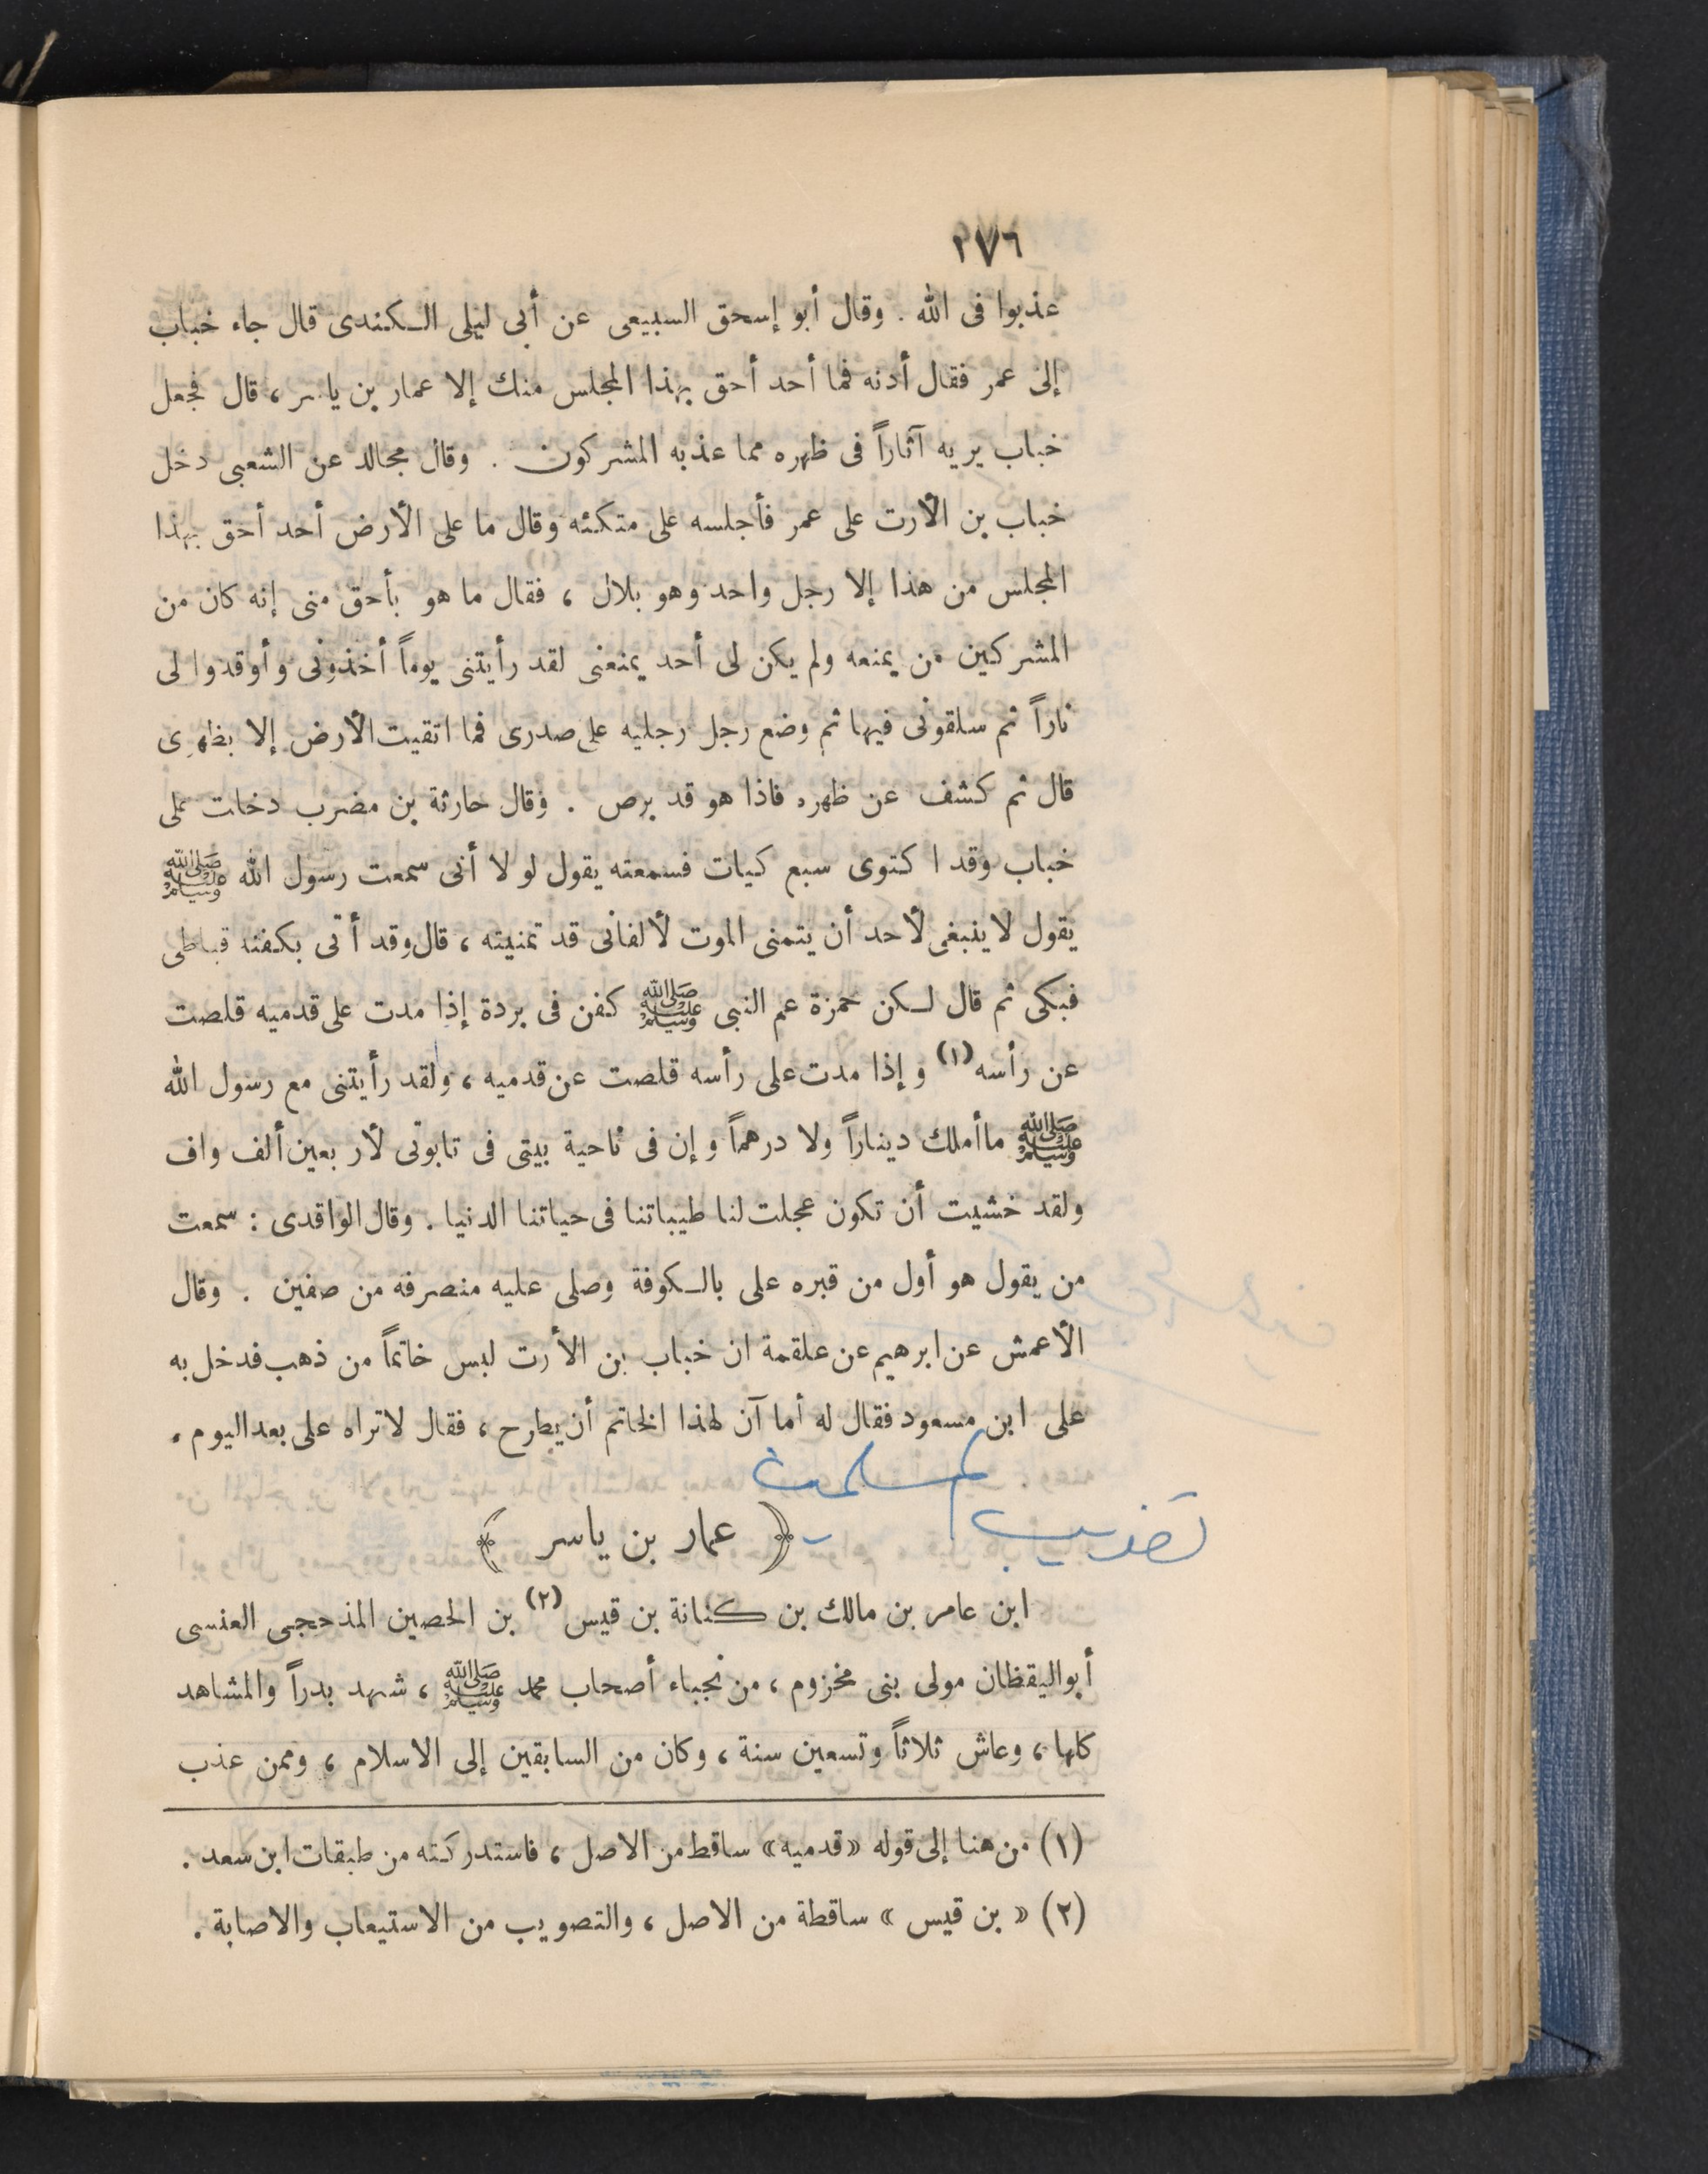 ١٧٦
عذبوا فى الله . وقال أبو إسحق السبيعى عن أبى ليلى الكندى قال جاء خباب
إلى عمر فقال أدنه فما أحد أحق بهذا المجلس منك إلا عمار بن ياسر ، قال فجعل
خباب يريه آثاراً فى ظهره مما عذبه المشركون . وقال مجالد عن الشعبى دخل
خباب بن الأرت على عمر فأجلسه على متكئه وقال ما على الأرض أحد أحق بهذا
المجلس من هذا إلا رجل واحد وهو بلال ، فقال ما هو بأحق منى إنه كان من
المشركين من يمنعه ولم يكن لى أحد يمنعنى لقد رأيتنى يوماً أخذونى وأوقدوا لى
ناراً ثم سلقونى فيها ثم وضع رجل رجليه على صدرى فما اتقيت الأرض إلا بظهرى
قال ثم كشف عن ظهره فاذا هو قد برص . وقال حارثة بن مضرب دخلت على
خباب وقد اكتوى سبع كيات فسمعته يقول لو لا أنى سمعت رسول الله ﷺ
يقول لا ينبغى لأحد أن يتمنى الموت لألفانى قد تمنيته ، قال وقد أتى بكفنه قباطى
فبكى ثم قال لكن حمزة عم النبى ﷺ كفن فى بردة إذا مدت على قدميه قلصت
عن رأسه (١) و إذا مدت على رأسه قلصت عن قدميه ، ولقد رأيتنى مع رسول الله
ﷺ ما أملك ديناراً ولا درهماً و إن فى ناحية بيتى فى تابوتى لأربعين ألف واف
ولقد خشيت أن تكون عجلت لنا طيباتنا فى حياتنا الدنيا . وقال الواقدى : سمعت
من يقول هو أول من قبره على بالكوفة وصلى عليه منصرفه من صفين . وقال
الأعمش عن ابرهيم عن علقمة ان خباب بن الأرت لبس خاتماً من ذهب فدخل به
على ابن مسعود فقال له أما آن لهذا الخاتم أن يطرح ، فقال لا تراه على بعد اليوم .
تعذيب المسلمين
﴿ عمار بن ياسر ﴾
ابن عامر بن مالك بن كنانة بن قيس (٢) بن الحصين المذحجى العنسى
أبو اليقظان مولى بنى مخزوم ، من نجباء أصحاب محمد ﷺ ، شهد بدراً والمشاهد
كلها ، وعاش ثلاثاً وتسعين سنة ، وكان من السابقين إلى الاسلام ، وممن عذب
(١) من هنا إلى قوله «قدميه» ساقط من الاصل ، فاستدركته من طبقات ابن سعد .
(٢) « بن قيس » ساقطة من الاصل ، والتصويب من الاستيعاب والاصابة .